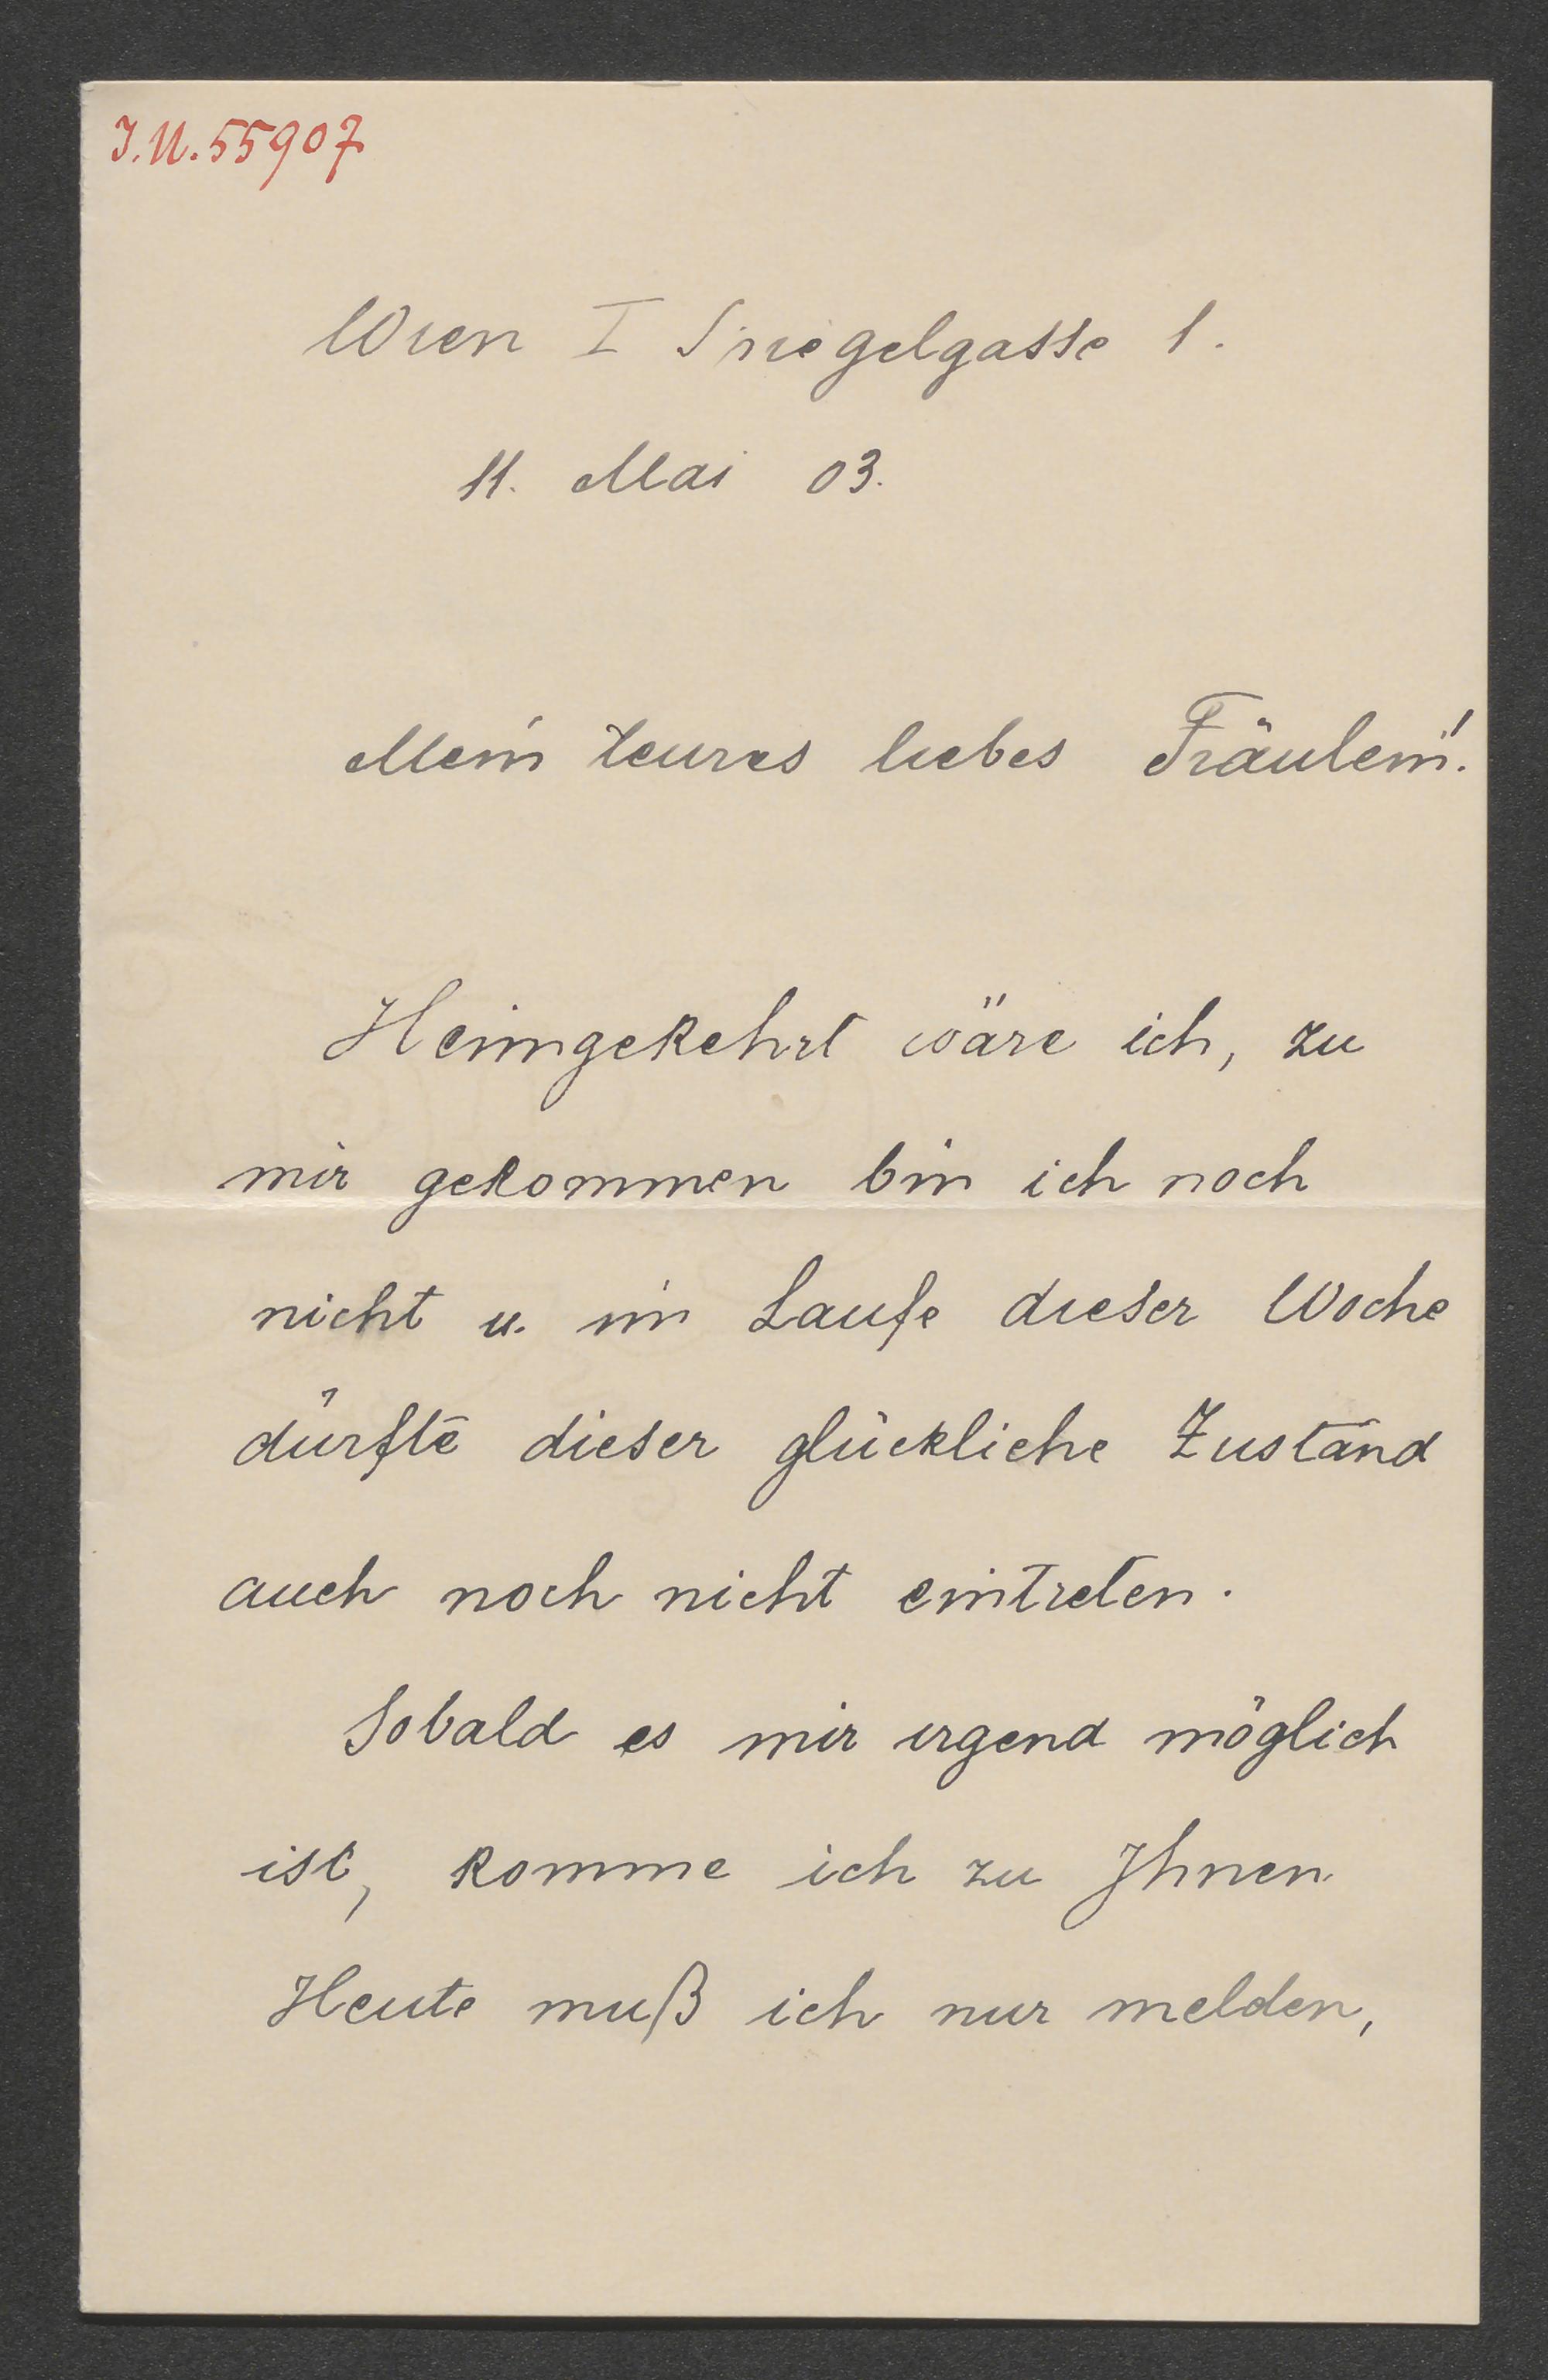 I.N. 55907
Wien I Spiegelgasse 1.
11. Mai 03.
Mein teures liebes Fräulein!
Heimgekehrt wäre ich, zu
mir gekommen bin ich noch
nicht u. im Laufe dieser Woche
dürfte dieser glückliche Zustand
auch noch nicht eintreten.
Sobald es mir irgend möglich
ist, komme ich zu Ihnen.
Heute muß ich nur melden,